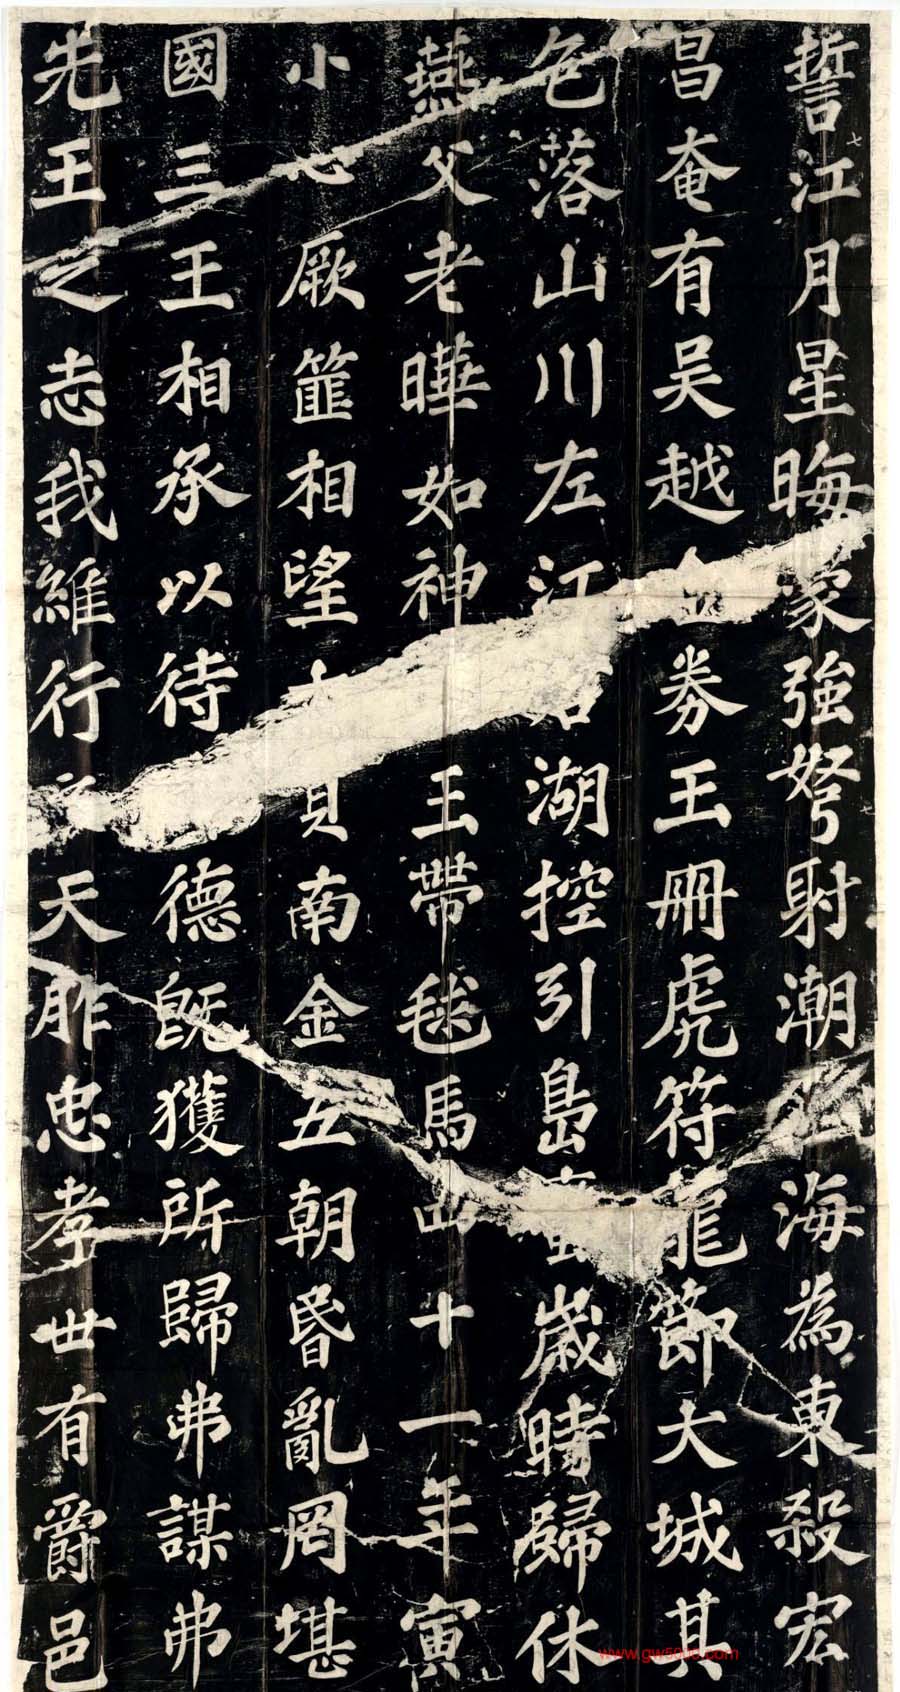 誓江月星晦蒙強弩射潮江海為東殺宏
昌奄有吳越金券王冊虎符龍節大城其
包落山川左江右湖控引島蠻歲時歸休
燕父老曄如神王帶毬馬四十一年寅
小心厥篚相望大貝南金五朝昬亂罔堪
國三王相承以待德既獲所歸弗謀弗
先王之志我維行之天胙忠孝世有爵邑